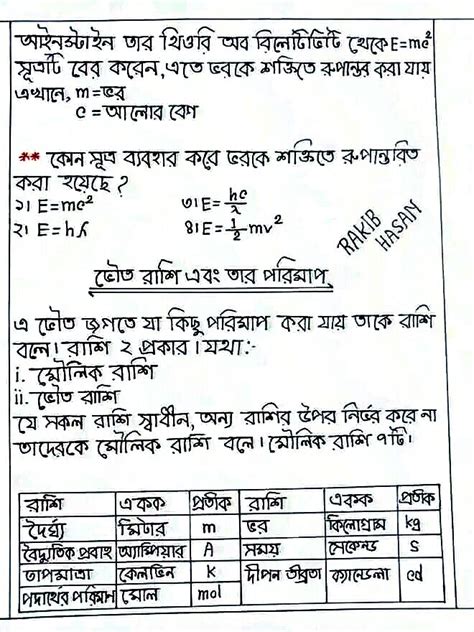 আইনস্টাইন তার থিওরি অব রিলেটিভিটি থেকে E=mc²
সূত্রটি বের করেন, এতে ভরকে শক্তিতে রুপান্তর করা যায়
এখানে, m=ভর
c = আলোর বেগ
** কোন সূত্র ব্যবহার করে ভরকে শক্তিতে রুপান্তরিত
করা হয়েছে ?
১। E=mc² ৩। E= hc/λ
২। E=hf ৪। E= 1/2 mv²
RAKIB HASAN
ভৌত রাশি এবং তার পরিমাপ
এ ভৌত জগতে যা কিছু পরিমাপ করা যায় তাকে রাশি
বলে। রাশি ২ প্রকার। যথা:-
i. মৌলিক রাশি
ii. ভৌত রাশি
যে সকল রাশি স্বাধীন, অন্য রাশির উপর নির্ভর করে না
তাদেরকে মৌলিক রাশি বলে। মৌলিক রাশি ৭টি।
রাশি একক প্রতীক রাশি একক প্রতীক
দৈর্ঘ্য মিটার m ভর কিলোগ্রাম kg
বৈদ্যুতিক প্রবাহ অ্যাম্পিয়ার A সময় সেকেন্ড s
তাপমাত্রা কেলভিন K দীপন তীব্রতা ক্যান্ডেলা cd
পদার্থের পরিমান মোল mol